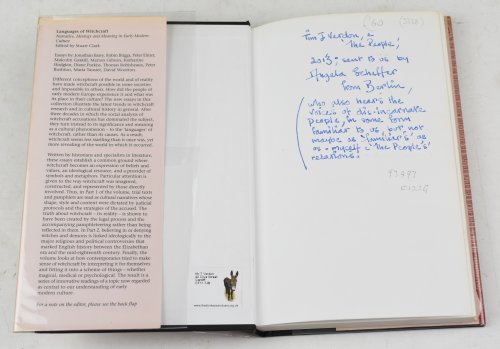 Languages of Witchcraft
Narrative, Ideology and Meaning in Early Modern
Culture
Edited by Stuart Clark
Essays by Jonathan Barry, Robin Briggs, Peter Elmer,
Malcolm Gaskill, Marion Gibson, Katharine
Hodgkin, Diane Purkiss, Thomas Robisheaux, Peter
Rushton, Maria Tausiet, David Wootton.
Different conceptions of the world and of reality
have made witchcraft possible in some societies
and impossible in others. How did the people of
early modern Europe experience it and what was
its place in their culture? The new essays in this
collection illustrate the latest trends in witchcraft
research and in cultural history in general. After
three decades in which the social analysis of
witchcraft accusations has dominated the subject,
they turn instead to its significance and meaning
as a cultural phenomenon - to the 'languages' of
witchcraft, rather than its causes. As a result,
witchcraft seems less startling than it once was, yet
more revealing of the world in which it occurred.
Written by historians and specialists in literature,
these essays establish a common ground where
witchcraft becomes an expression of beliefs and
values, an ideological resource, and a provider of
symbols and metaphors. Particular attention is
given to the way witchcraft was imagined,
constructed, and represented by those directly
involved. Thus, in Part 1 of the volume, trial texts
and pamphlets are read as cultural narratives whose
shape, style and content were dictated by judicial
protocols and the strategies of the accused. The
truth about witchcraft - its reality - is shown to
have been created by the legal process and the
accompanying pamphleteering rather than being
reflected in them. In Part 2, believing in or denying
witches and demons is linked ideologically to the
major religious and political controversies that
marked English history between the Elizabethan
era and the mid-eighteenth century. Finally, the
volume looks at how contemporaries tried to make
sense of witchcraft by interpreting it for themselves
and fitting it into a scheme of things - whether
magical, medical or psychological. The result is a
series of innovative readings of a topic now regarded
as central to our understanding of early
modern culture.
For a note on the editor, please see the back flap
Mr T Verdon
Tim J Verdon,
'the People',
2013: sent to us by
Angela Scheffer
from Berlin,
who also hears the
voices of dis-incarnate
people, in some form
familiar to us, but not
maybe as 'familiar's' as
as - myself 'The People's'
relations.